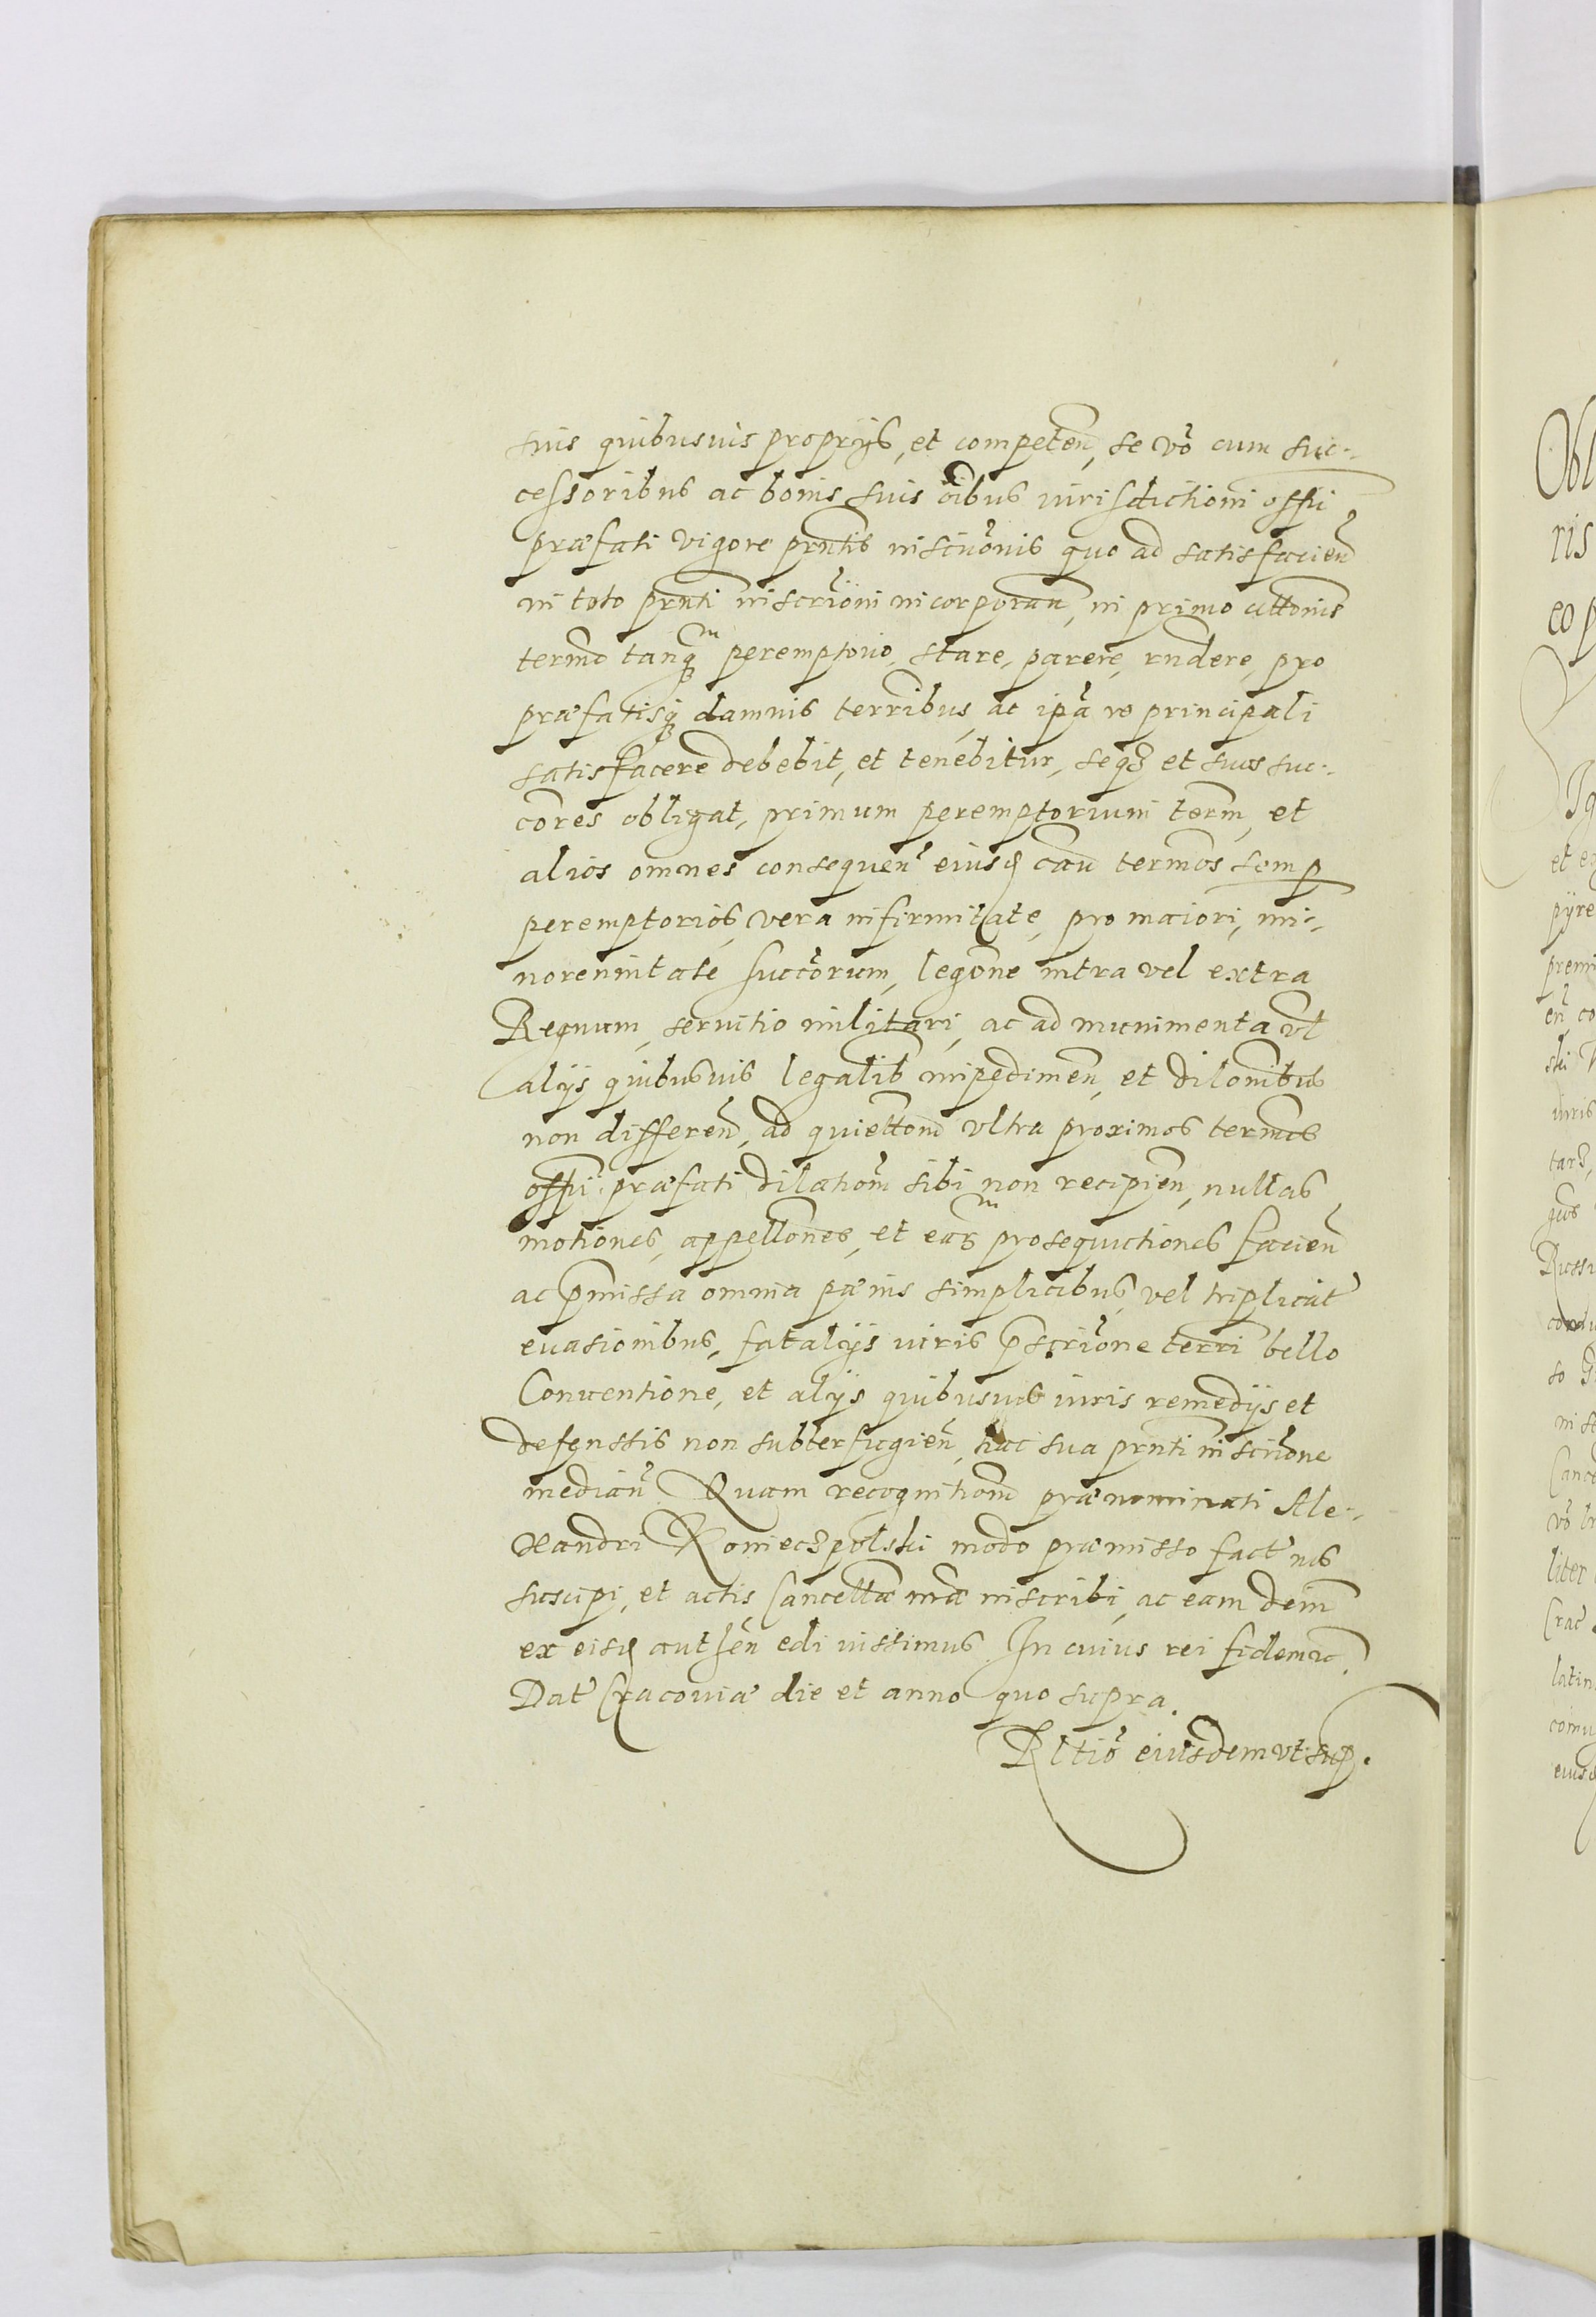 suis quibusuis proprijs, et competen, se vo cum suc-
cessoribus ac bonis suis oibus iurisdictioni offi
præfati vigore prntis inscriõnis quo ad satisfacien
in toto prnti inscriõni incorporatu, in primo cittonis
termo tanq̃m peremptorio, stare, parere, rndere, pro
præfatisq; damnis terribus, ac ipa re principali
satisfacere debebit, et tenebitur, seq3 et suos suc-
cores obligat, primum peremptorium term, et
alios omnes consequen eiusd cau termos semp
peremptorios, vera infirmitate, pro maiori, mi-
norennitate succorum, legone intra vel extra
Regnum, seruitio militari, ac ad munimenta vl
alijs quibusuis legalib impedimen, et dilonibus
non differen, ad quiettom vltra proximos termos
offi præfati dilationi sibi non recipien, nullas
motiones, appellones, et earm prosequutiones facien
ac pmissa omnia pænis simplicibus, vel triplicat
euasionibus, fatalijs iuris pscrione terri bello
Conuentione, et alijs quibusuis iuris remedijs et
defenssis non subterfugien, hac sua prnti inscrione
median. Quam recognitiom prænominati Ale-
xandri Koniec3polski modo præmisso fact nos
suscipi, et actis Cancellæ nræ inscribi, ac eam dem
ex eisd authen edi iussimus. In cuius rei fidem ꝛc.
Dat Cracouiæ die et anno quo supra.
Rltio eiusdem vt sup.
Obl
ris
eo p
et eg
pyre
premi
en co
ski
iuris
tar3,
Russi
condu
so
in sc
Cance
vo
liter
Crac
latin
comu
eiusd